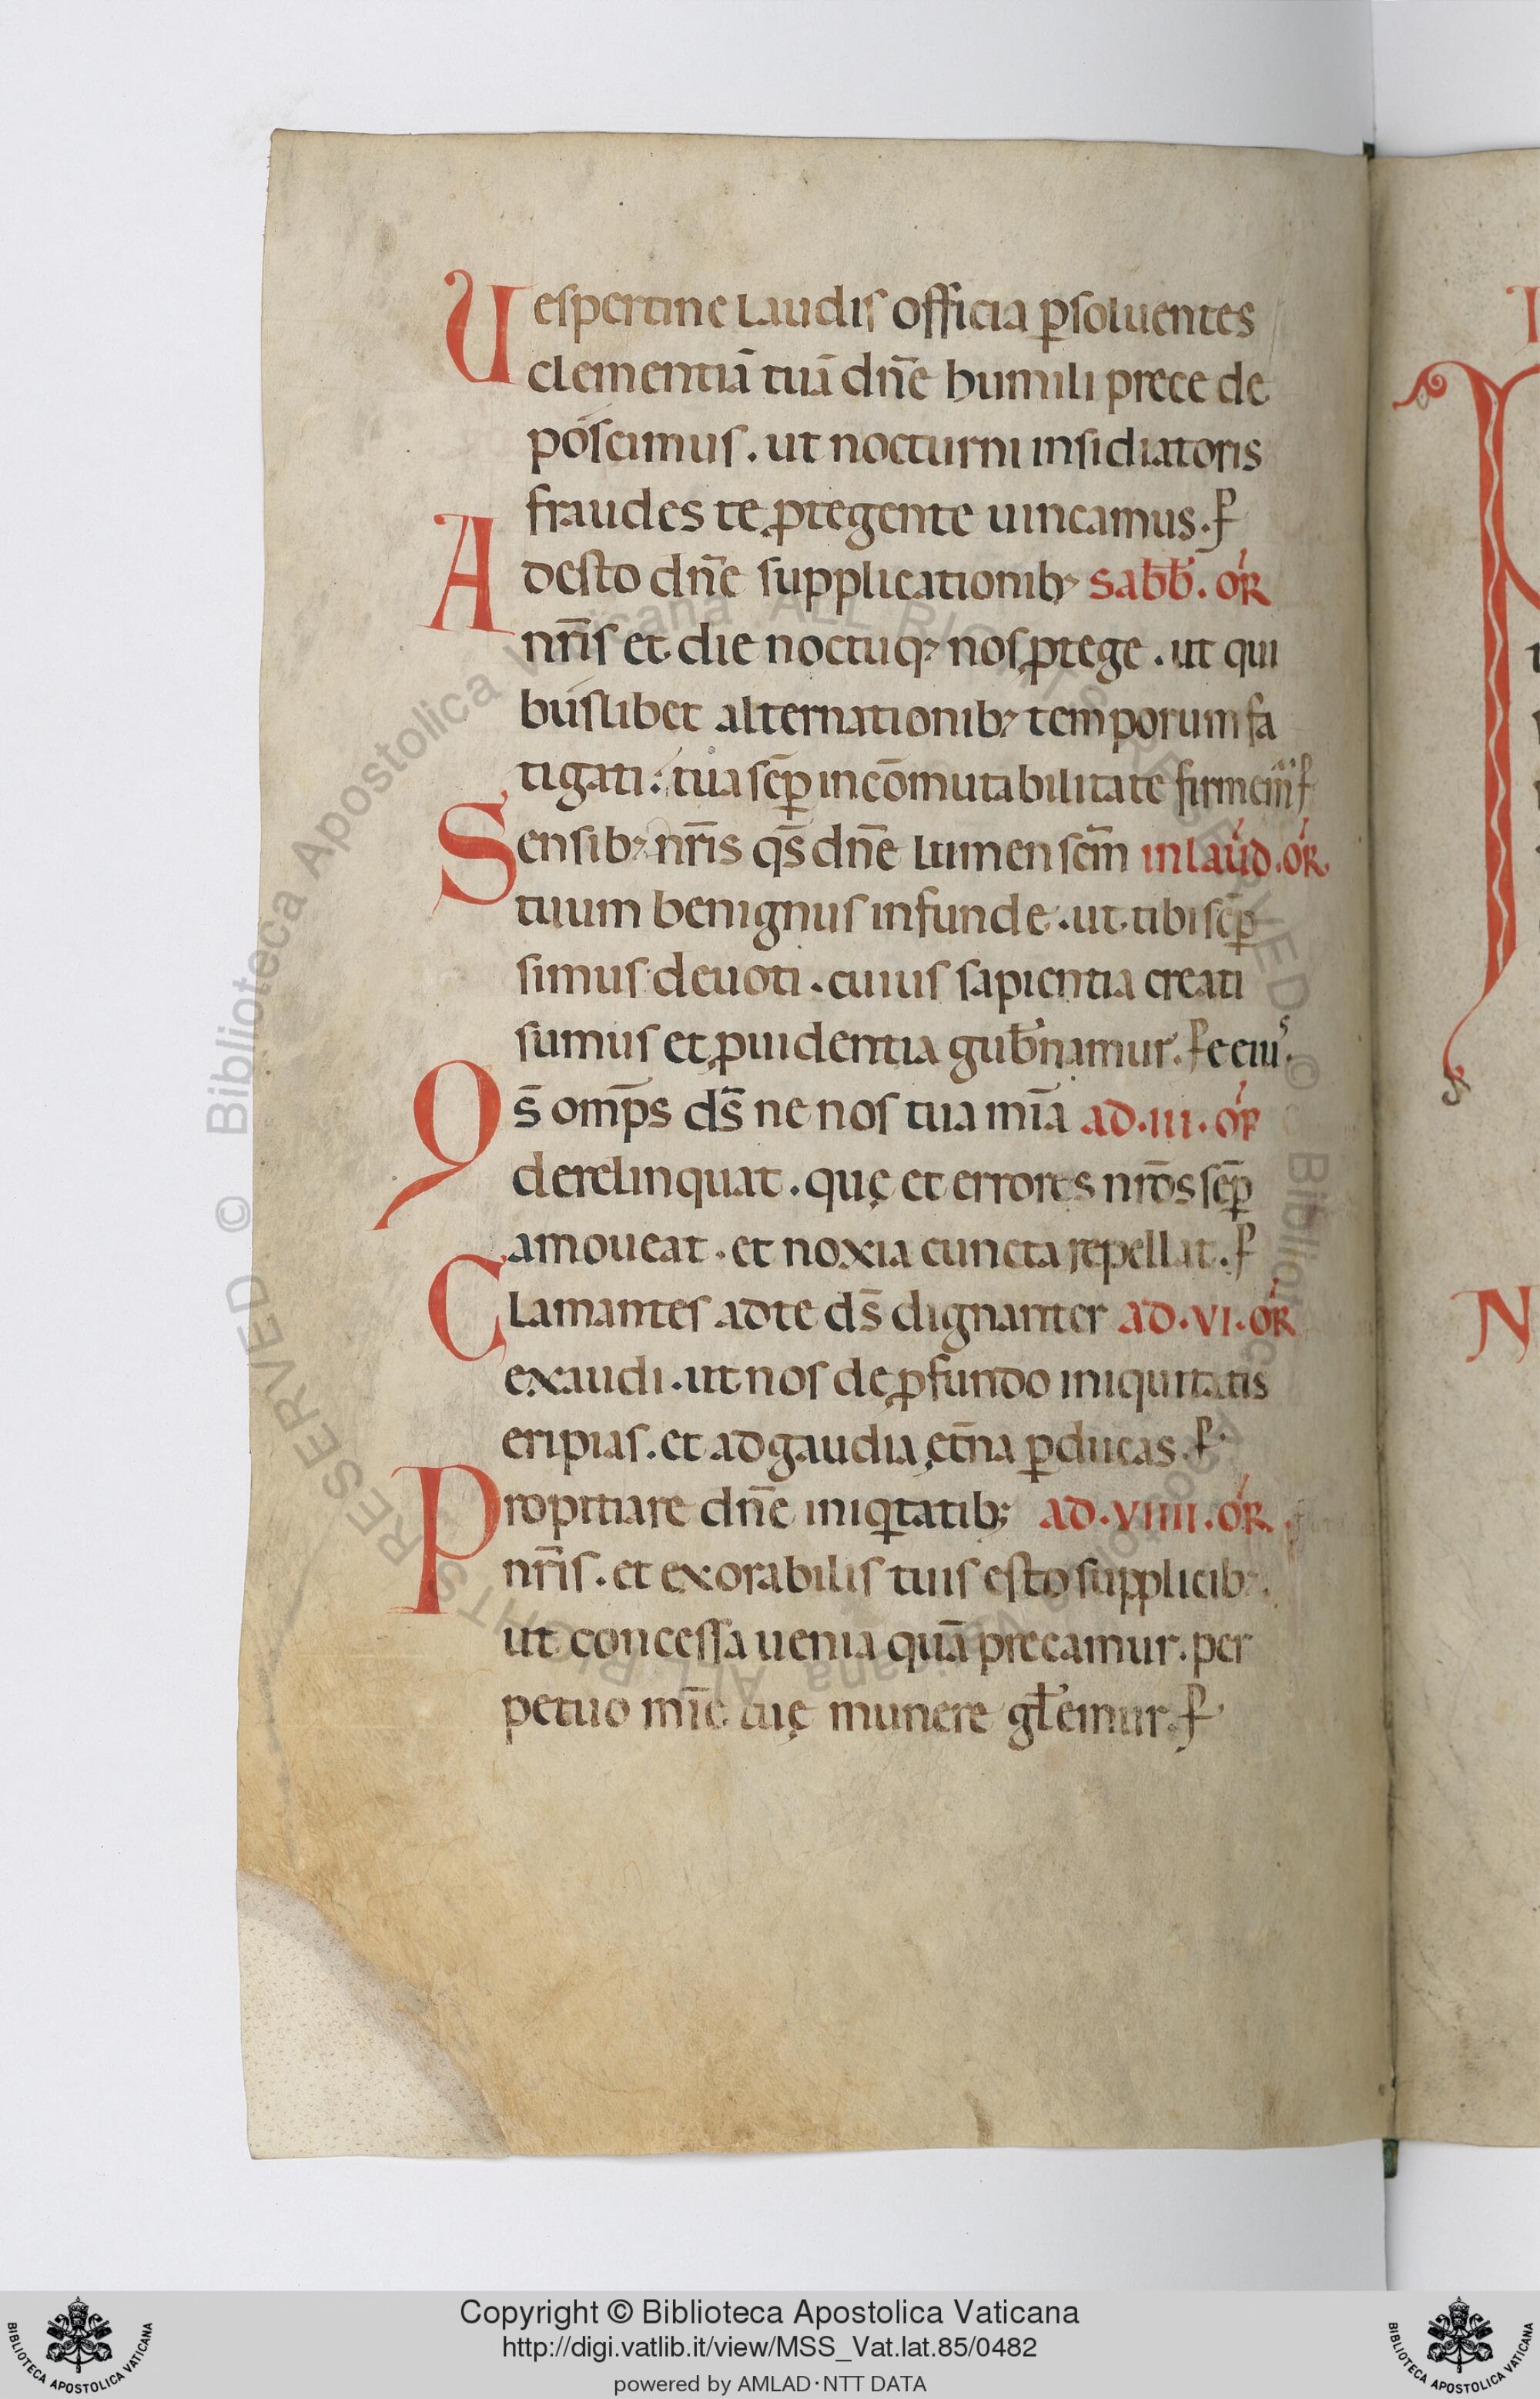 Uespertine laudis officia ꝑsoluentes
clementiā tuā dn̄e humili prece de
poscimus. ut nocturni insidiatoris
fraudes te ꝓtegente uincamus. ꝑ
Adesto dn̄e supplicationib; sabb̄. or̄
nr̄is et die noctuq; nos ꝓtege. ut qui
buslibet alternationib; temporum fa
tigati. tua sēꝑ incōmutabilitate firmem̄ ꝑ
Sensib; nr̄is qs̄ dn̄e lumen sc̄m in laud. or̄
tuum benignus infunde. ut tibi sēꝑ
simus deuoti. cuius sapientia creati
sumus et ꝓuidentia gub̄namur. ꝑ e eiu᷒.
Qs̄ omp̄s ds̄ ne nos tua mīa ad. iii. or̄
derelinquat. quę et errores nr̄os sēꝑ
amoueat. et noxia cuncta repellat. ꝑ
Clamantes ad te ds̄ dignanter ad. vi. or̄
exaudi. ut nos de ꝓfundo iniquitatis
eripias. et ad gaudia ęt̄na ꝑducas. ꝑ
Propitiare dn̄e iniqⁱtatib; ad. viiii. or̄
nr̄is. et exorabilis tuis esto supplicib;
ut concessa uenia quā precamur. per
petuo mīe tuę munere gl̄emur. ꝑ
N
© Biblioteca Apostolica Vicana ALL RIGHTS RESERVED
Copyright © Biblioteca Apostolica Vaticana
http://digi.vatlib.it/view/MSS_Vat.lat.85/0482
powered by AMLAD·NTT DATA
BIBLIOTECA APOSTOLICA VATICANA
BIBLIOTECA APOSTOLICA VATICANA